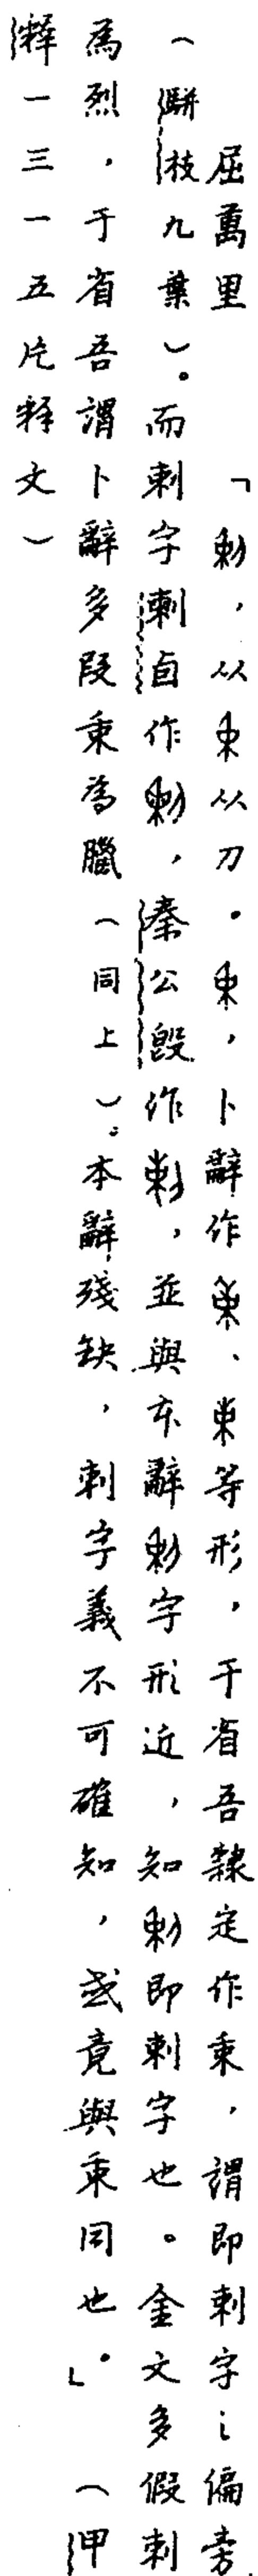 屈萬里　「𠛬，从朿从刀。朿，卜辭作、朿等形，于省吾隸定作朿，謂即剌字之偏旁
（駢枝九葉）。而剌字剌卣作，秦公𣪘作剌，並與本辭字形近，知即剌字也。金文多假剌
為烈，于省吾謂卜辭多叚朿為臘（同上）。本辭殘缺，剌字義不可確知，或竟與朿同也。」（甲
釋一三一五片釋文）